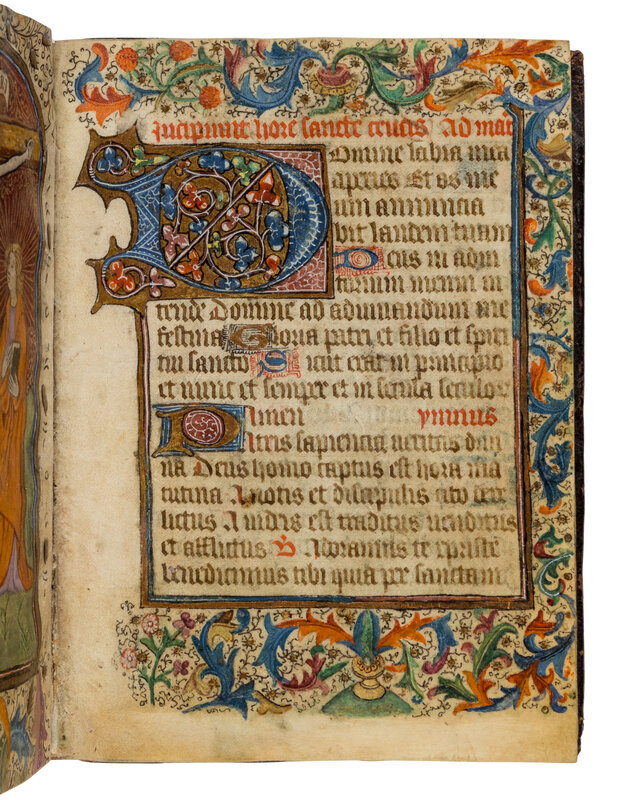 Incipiunt hore sancte crucis Ad mat
Domine labia mea
aperies Et os me
um annuncia
bit laudem tuam
Deus in adiu
torium meum in
tende Domine ad adiuuandum me
festina Gloria patri et filio et spiri
tui sancto Sicut erat in principio
et nunc et semper et in secula seculor
Amen ymnus
Patris sapiencia ueritas diui
na Deus homo captus est hora ma
tutina A notis et discipulis cito dere
lictus A iudeis est traditus uenditus
et afflictus V Adoramus te christe
benedicimus tibi quia per sanctam